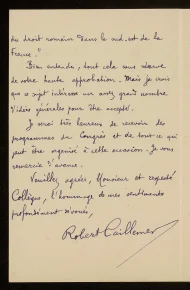 du droit romain dans le sud-est de la
France."
Bien entendu, tout cela sous réserve
de votre haute approbation. Mais je crois
que ce sujet intéresse un assez grand nombre
d'idées générales pour être accepté.
Je serai très heureux de recevoir des
programmes du Congrès et de tout ce qui
peut être organisé à cette occasion. Je vous
remercie d'avance.
Veuillez agréer, Monsieur et respecté
Collègue, l'hommage de mes sentiments
profondément dévoués,
Robert Caillemer